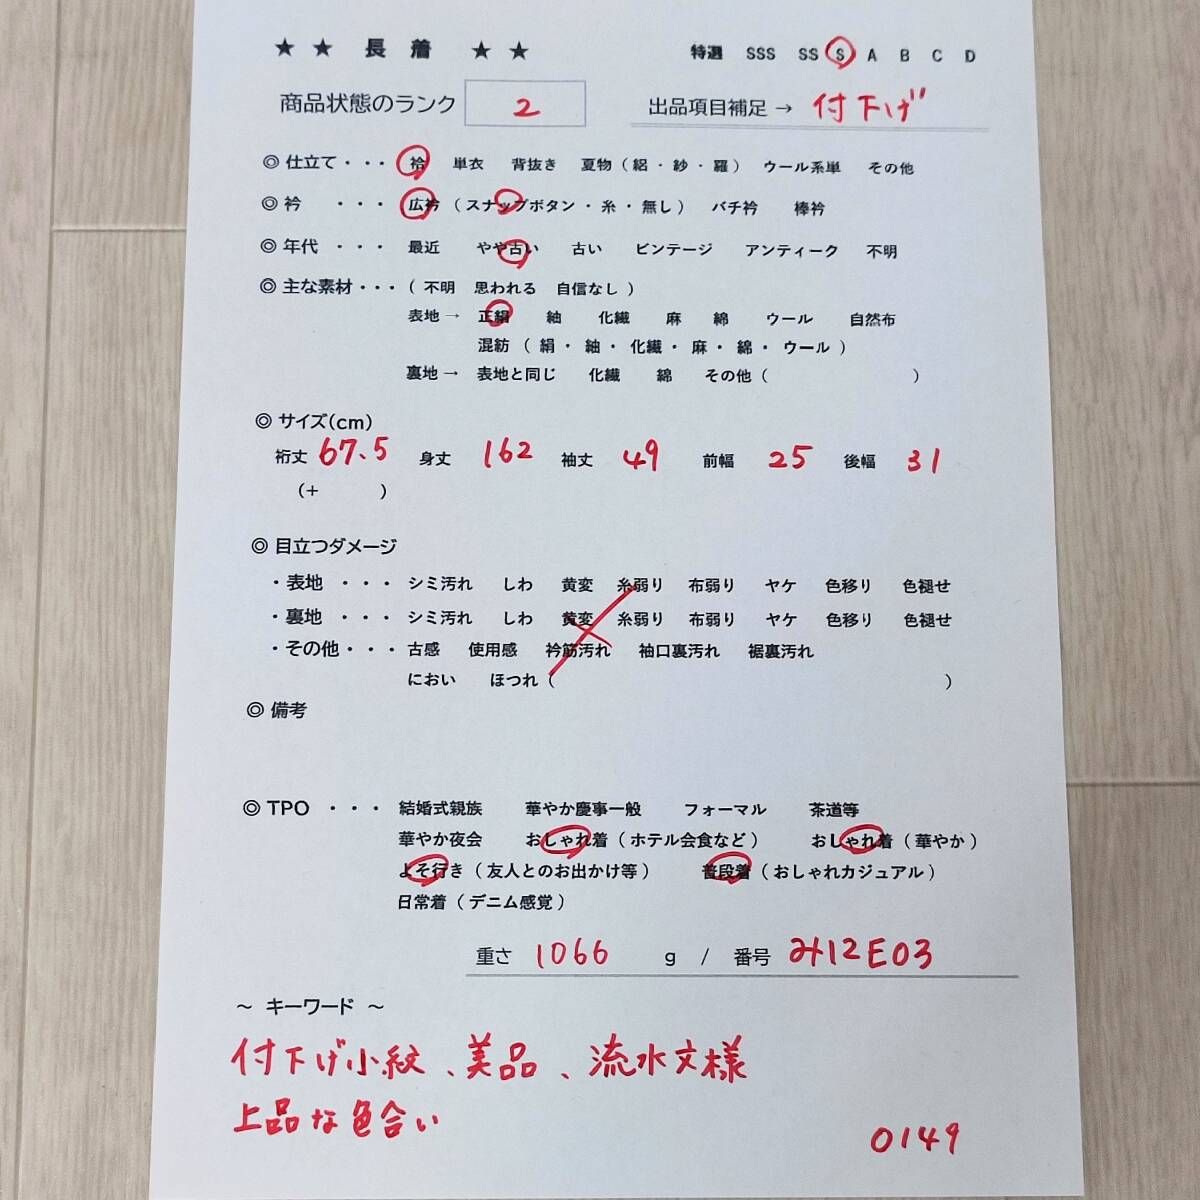 ★ ★ 長 着 ★ ★
特選 SSS SS S A B C D
商品状態のランク 2
出品項目補足 → 付下げ
◎ 仕立て ・・・ 袷 単衣 背抜き 夏物 ( 絽 ・ 紗 ・ 羅 ) ウール系単 その他
◎ 衿 ・・・ 広衿 ( スナップボタン ・ 糸 ・ 無し ) バチ衿 棒衿
◎ 年代 ・・・ 最近 やや古い 古い ビンテージ アンティーク 不明
◎ 主な素材 ・・・ ( 不明 思われる 自信なし )
表地 → 正絹 紬 化繊 麻 綿 ウール 自然布
混紡 ( 絹 ・ 紬 ・ 化繊 ・ 麻 ・ 綿 ・ ウール )
裏地 → 表地と同じ 化繊 綿 その他 ( )
◎ サイズ(cm)
裄丈 67.5 身丈 162 袖丈 49 前幅 25 後幅 31
(+ )
◎ 目立つダメージ
・ 表地 ・・・ シミ汚れ しわ 黄変 糸弱り 布弱り ヤケ 色移り 色褪せ
・ 裏地 ・・・ シミ汚れ しわ 黄変 糸弱り 布弱り ヤケ 色移り 色褪せ
・ その他 ・・・ 古感 使用感 衿筋汚れ 袖口裏汚れ 裾裏汚れ
におい ほつれ ( )
◎ 備考
◎ TPO ・・・ 結婚式親族 華やか慶事一般 フォーマル 茶道等
華やか夜会 おしゃれ着 ( ホテル会食など ) おしゃれ着 ( 華やか )
よそ行き ( 友人とのお出かけ等 ) 普段着 ( おしゃれカジュアル )
日常着 ( デニム感覚 )
重さ 1066 g / 番号 み12E03
～ キーワード ～
付下げ小紋、美品、流水文様
上品な色合い
0149